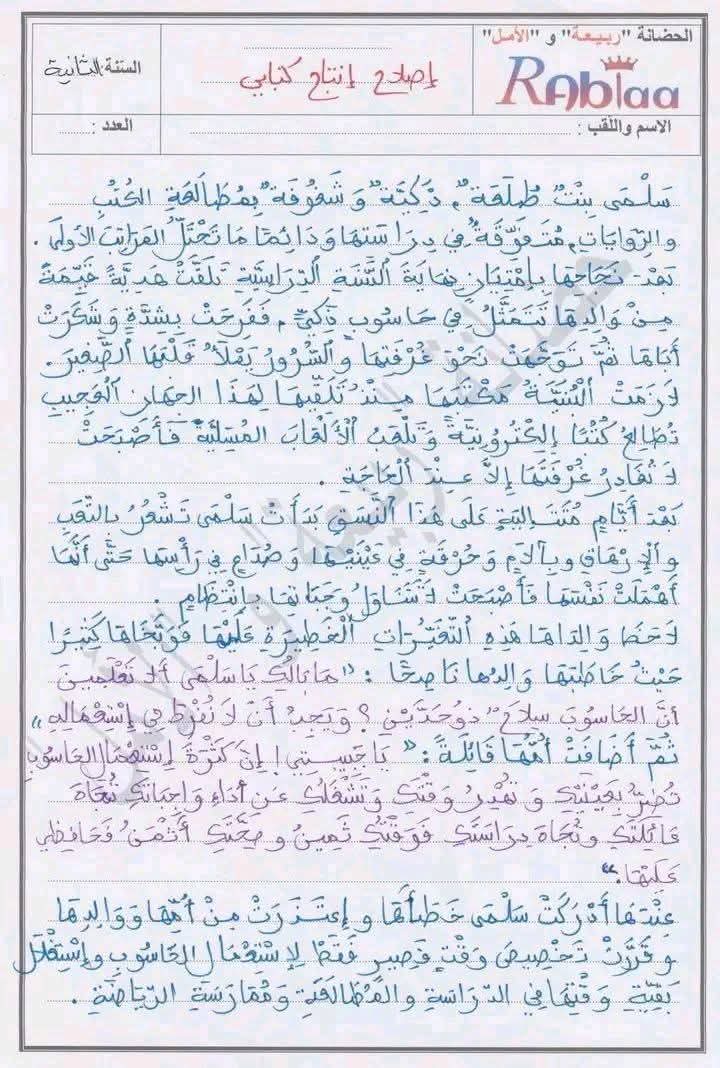 الحضانة "ربيعة" و "الأمل"
RAbiaa
إصلاح إنتاج كتابي
السنة: الثانية
الاسم واللقب :
العدد :
سَلْمَى بِنْتٌ مُطَلِعَةٌ، ذَكِيَّةٌ وَ شَغُوفَةٌ بِمُطَالَعَةِ الكُتُبِ
والرِّوَايَاتِ، مُتَفَوِّقَةٌ فِي دِرَاسَتِهَا وَدَائِمًا مَا تَحْتَلُّ المَرَاتِبَ الأُولَى.
بَعْدَ نَجَاحِهَا بِامْتِيَازٍ نِهَايَةَ السَّنَةِ الدِّرَاسِيَّةِ تَلَقَّتْ هَدِيَّةً قَيِّمَةً
مِنْ وَالِدِهَا تَتَمَثَّلُ فِي حَاسُوبٍ ذَكِيٍّ، فَفَرِحَتْ بِشِدَّةٍ وَشَكَرَتْ
أَبَاهَا ثُمَّ تَوَجَّهَتْ نَحْوَ غُرْفَتِهَا والسُّرُورُ يَمْلَأُ قَلْبَهَا الصَّغِيرَ.
لَازَمَتْ مَكْتَبَهَا مُنْذُ تَلَقِّيهَا لِهَذَا الجِهَازِ العَجِيبِ
تُطَالِعُ كُتُبًا إِلِكْتْرُونِيَّةً وَتَلْعَبُ الأَلْعَابَ المُسَلِّيَةَ فَأَصْبَحَتْ
لَا تُغَادِرُ غُرْفَتَهَا إِلَّا عِنْدَ الْحَاجَةِ.
بَعْدَ أَيَّامٍ مُتَتَالِيَةٍ عَلَى هَذَا النَّسَقِ بَدَأَتْ سَلْمَى تَشْعُرُ بِالتَّعَبِ
والإِرْهَاقِ وبِآلَامٍ وَحُرْقَةٍ فِي عَيْنَيْهَا وَصُدَاعٍ فِي رَأْسِهَا حَتَّى أَنَّهَا
أَهْمَلَتْ نَفْسَهَا فَأَصْبَحَتْ لَا تَتَنَاوَلُ وَجَبَاتِهَا بِانْتِظَامٍ.
لَاحَظَ وَالِدَاهَا هَذِهِ التَّغَيُّرَاتِ الْخَطِيرَةِ عَلَيْهَا فَوَبَّخَاهَا كَثِيرًا
حَيْثُ خَاطَبَهَا وَالِدُهَا نَاصِحًا : "مَا بَالُكِ يَا سَلْمَى أَلَا تَعْلَمِينَ
أَنَّ الحَاسُوبَ سِلَاحٌ ذُو حَدَّيْنِ؟ وَيَجِبُ أَنْ لَا نُفْرِطَ فِي إِسْتِعْمَالِهِ"
ثُمَّ أَضَافَتْ أُمُّهَا قَائِلَةً: "يَا حَبِيبَتِي! إِنَّ كَثْرَةَ إِسْتِعْمَالِ الحَاسُوبِ
تُضِرُّ بِعَيْنَيْكِ وَتُهْدِرُ وَقْتَكِ وَتَشْغَلُكِ عَنْ أَدَاءِ وَاجِبَاتِكِ تُجَاهَ
عَائِلَتِكِ وتُجَاهَ دِرَاسَتِكِ فَوَقْتُكِ ثَمِينٌ وصِحَّتُكِ أَثْمَنُ فَحَافِظِي
عَلَيْهَا."
عِنْدَهَا أَدْرَكَتْ سَلْمَى خَطَأَهَا وإِعْتَذَرَتْ مِنْ أُمِّهَا وَوَالِدِهَا
وقَرَّرَتْ تَخْصِيصَ وَقْتٍ قَصِيرٍ فَقَطْ لِإِسْتِعْمَالِ الحَاسُوبِ وإِسْتِغْلَالَ
بَقِيَّةِ وَقْتِهَا فِي الدِّرَاسَةِ والمُطَالَعَةِ وَمُمَارَسَةِ الرِّيَاضَةِ.
حضانة ربيعة و الأمل